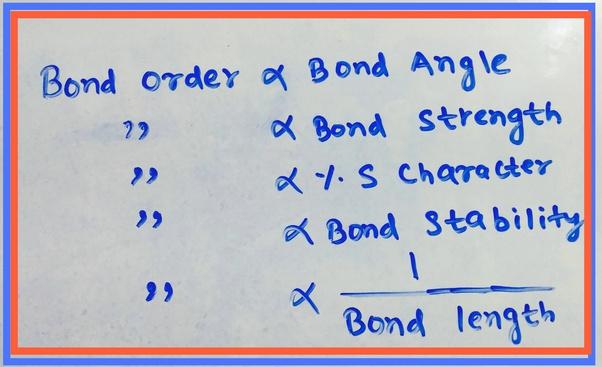 Bond order ∝ Bond Angle
,, ∝ Bond strength
,, ∝ %. S Character
,, ∝ Bond Stability
,, ∝ 1
Bond length